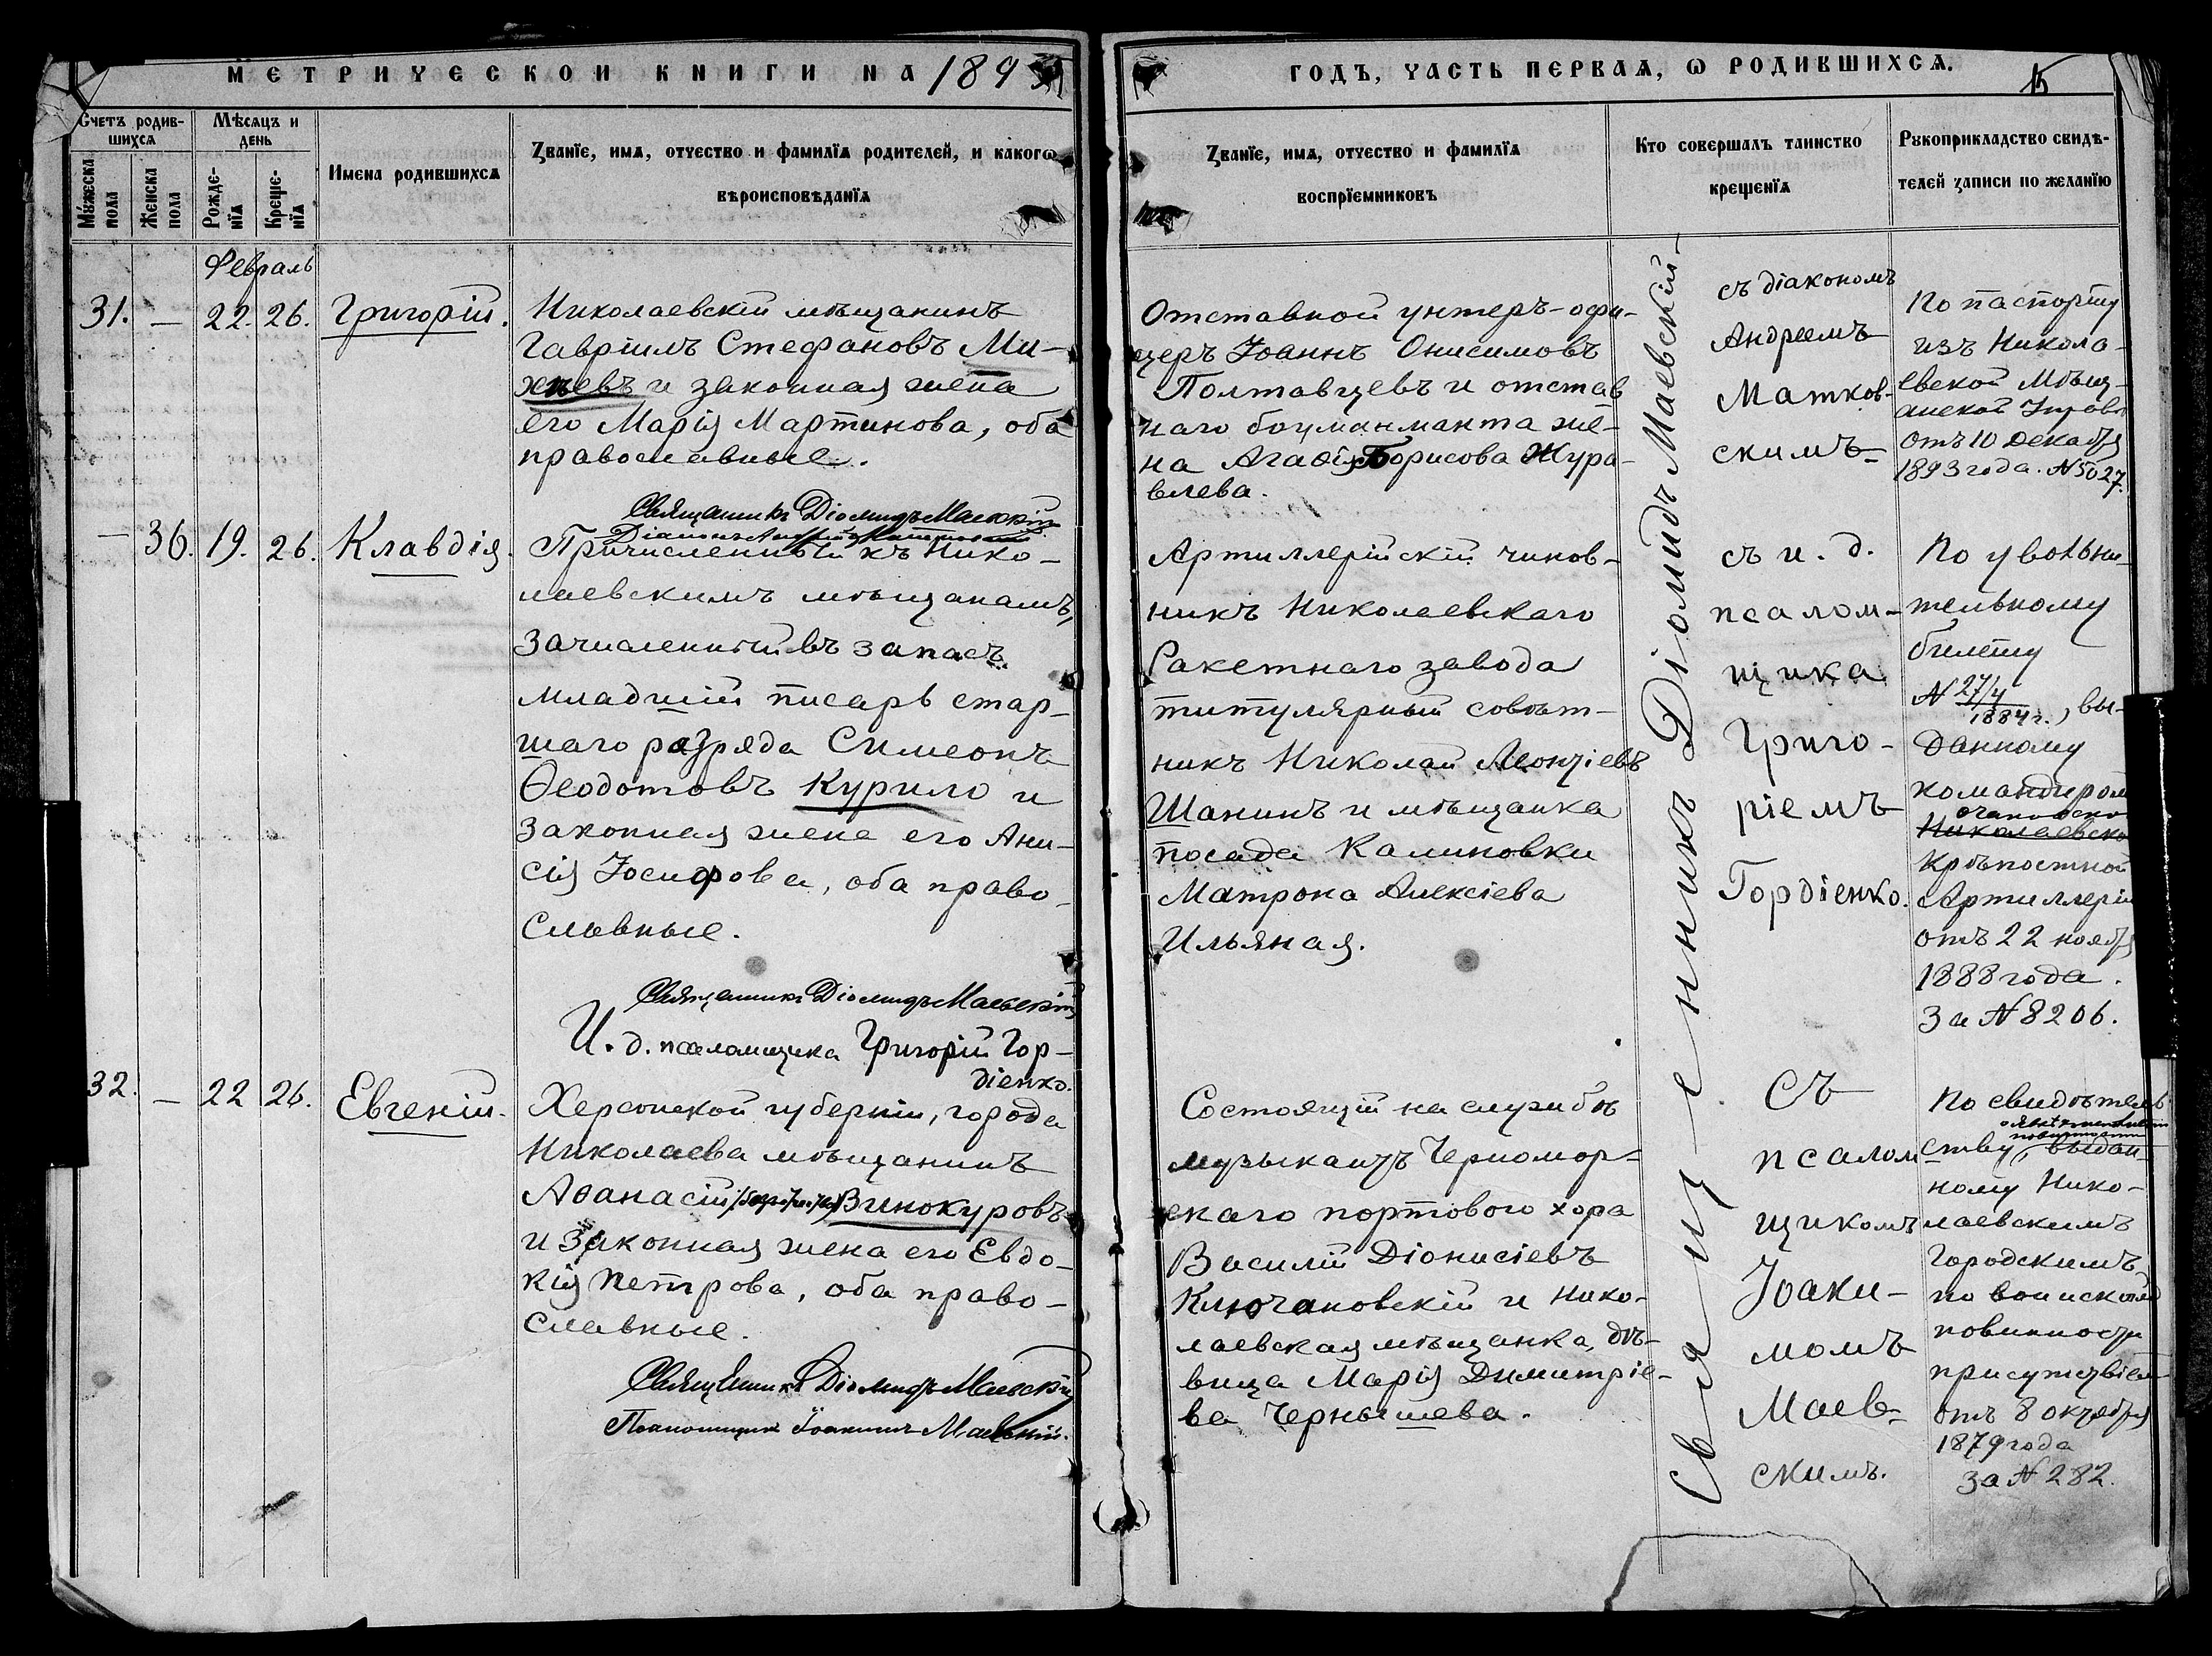 МЕТРИЧЕСКОЙ КНИГИ НА 1895
ГОДЪ, ЧАСТЬ ПЕРВАЯ, Ѡ РОДИВШИХСЯ.
15
Счетъ родив-
шихся
Мужеска
пола
Женска
пола
Мѣсяцъ и
день
Рожде-
нїя
Креще-
нїя
Имена родившихся
Званїе, имя, отчество и фамилїя родителей, и какогѡ
вѣроисповѣданїя
Званїе, имя, отчество и фамилїя
воспрїемниковъ
Кто совершалъ таинство
крещенїя
Рукоприкладство свидѣ-
телей записи по желанїю
Февраль
31. — 22. 26. Григорій.
Николаевскій мѣщанинъ
Гавріилъ Стефановъ Ми-
хневъ и законная жена
его Марія Мартинова, оба
православные.
Священникъ Діомидъ Маевскій
Діаконъ Андрей Матковскій
Отставной унтеръ-офи-
церъ Іоаннъ Онисимовъ
Полтавцевъ и отстав
наго боцманмата же-
на Агаѳія Борисова Жура-
влева.
Священникъ Діомидъ Маевскій
съ діакономъ
Андреемъ
Матков-
скимъ
По паспорту
изъ Никола-
евской Мѣщ-
анской Управы
отъ 10 Декабря
1893 года. № 5027.
— 36. 19. 26. Клавдія.
Причисленный къ Нико-
лаевскимъ мѣщанамъ,
зачисленный въ запасъ
младшій писарь стар-
шаго разряда Симеонъ
Ѳеодотовъ Курило и
законная жена его Ани-
сія Іосифова, оба право-
славные.
Священникъ Діомидъ Маевскій
И. д. псаломщика Григорій Гор-
діенко.
Артиллерійскій чинов-
никъ Николаевскаго
Ракетнаго завода
титулярный совѣт-
никъ Николай Леонтіевъ
Шанинъ и мѣщанка
посада Калиновки
Матрона Алексіева
Ильяная.
съ и. д.
псалом-
щика
Григо-
ріемъ
Гордіенко.
По увольни-
тельному
билету
№ 27/4
1884 г., вы-
данному
командиромъ
Очаковско
Николаевско
Крѣпостной
Артиллеріи
отъ 22 ноября
1888 года.
За № 8206.
32. — 22 26. Евгеній.
Херсонской губерніи, города
Николаева мѣщанинъ
Аѳанасій Винокуровъ
и законная жена его Евдо-
кія Петрова, оба право-
славные.
Священникъ Діомидъ Маевскій
Псаломщикъ Іоакимъ Маевскій.
Состоящій на службѣ
музыкантъ Черномор-
скаго портового хора
Василій Діонисіевъ
Ключановскій и Нико-
лаевская мѣщанка, дѣ-
вица Марія Димитріе-
ва Чернышева.
Съ
псалом
щикомъ
Іоаки-
момъ
Маев-
скимъ.
По свидѣтель
ству, выдан-
ному Нико-
лаевскимъ
Городскимъ
по воинской
повинности
присутствіем
отъ 8 октября
1879 года
за № 282.